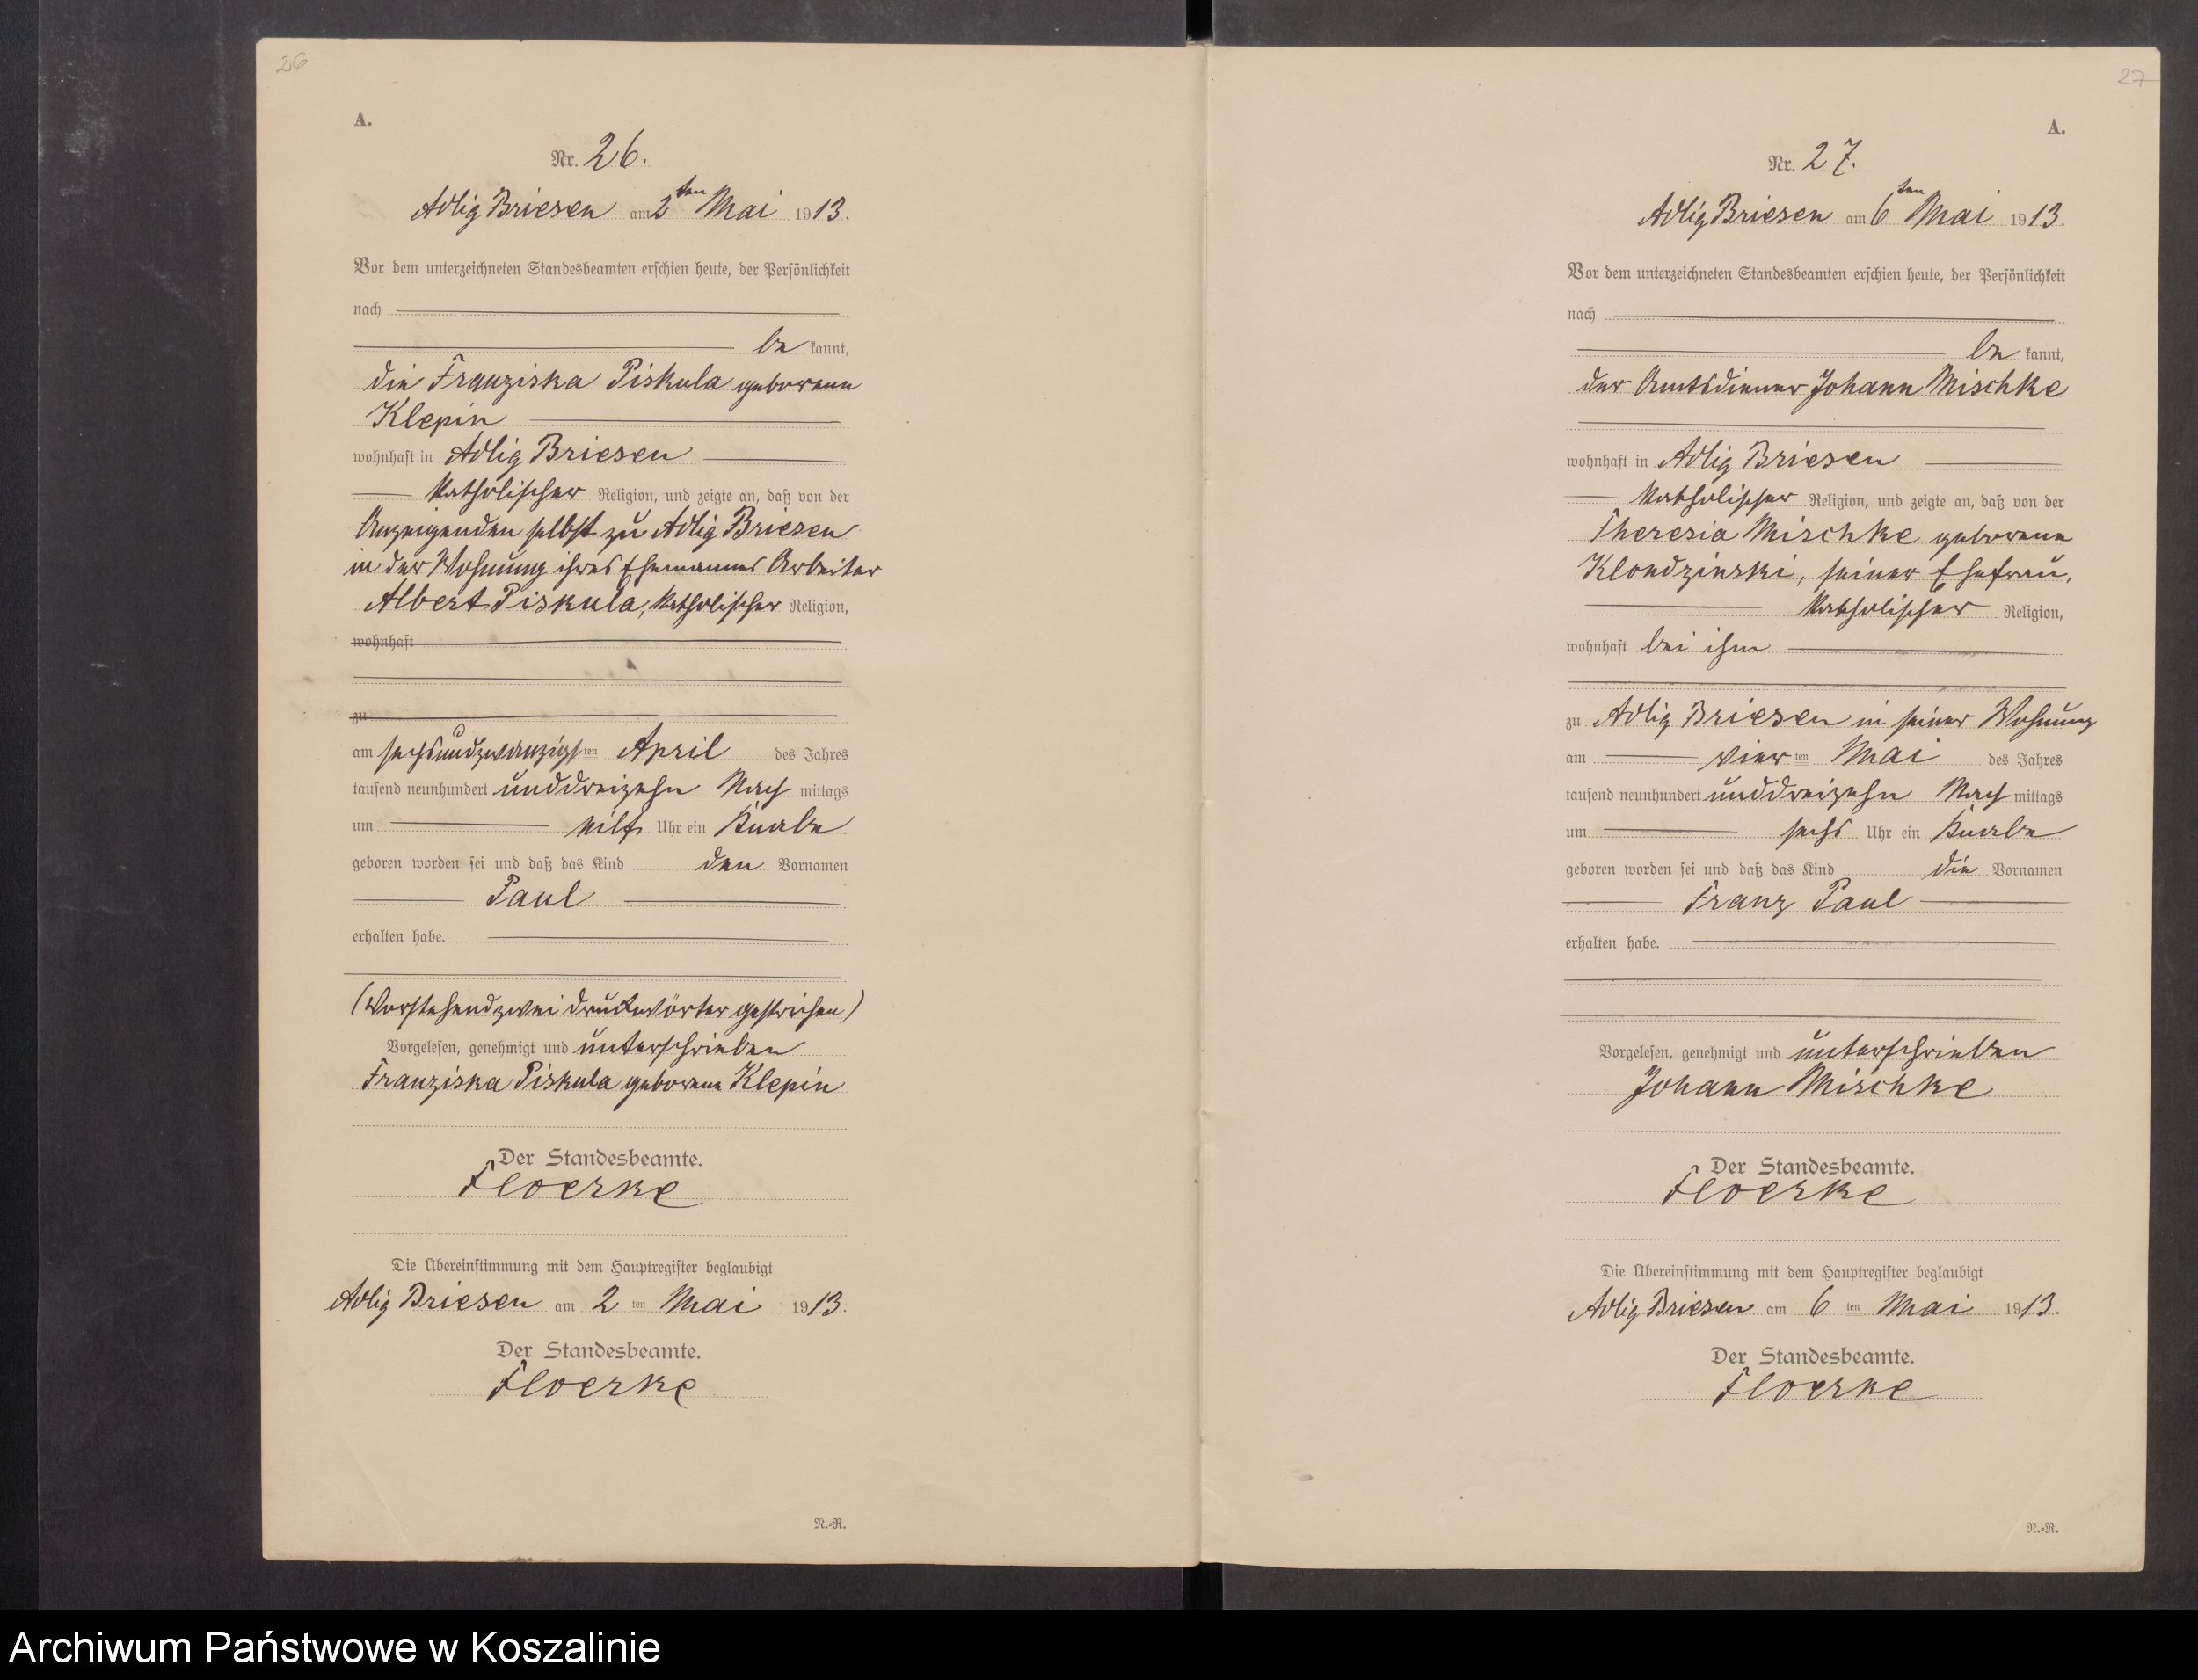 26
A.
Nr. 26.
Adlig Briesen am 2ten Mai 1913.
Vor dem unterzeichneten Standesbeamten erschien heute, der Persönlichkeit
nach
be kannt,
die Franziska Piskula geborene
Klepin
wohnhaft in Adlig Briesen
katholischer Religion, und zeigte an, daß von der
Anzeigenden selbst zu Adlig Briesen
in der Wohnung ihres Ehemannes Arbeiter
Albert Piskula, katholischer Religion,
wohnhaft
zu
am sechsundzwanzigsten April des Jahres
tausend neunhundert unddreizehn Nach mittags
um elf Uhr ein Knabe
geboren worden sei und daß das Kind den Vornamen
Paul
erhalten habe.
(Vorstehend zwei Druckwörter gestrichen)
Vorgelesen, genehmigt und unterschrieben
Franziska Piskula geborene Klepin
Der Standesbeamte.
Floerke
Die Übereinstimmung mit dem Hauptregister beglaubigt
Adlig Briesen am 2 ten Mai 1913.
Der Standesbeamte.
Floerke
N.-R.
27
A.
Nr. 27.
Adlig Briesen am 6ten Mai 1913.
Vor dem unterzeichneten Standesbeamten erschien heute, der Persönlichkeit
nach
be kannt,
der Amtsdiener Johann Mischke
wohnhaft in Adlig Briesen
katholischer Religion, und zeigte an, daß von der
Theresia Mischke geborene
Klondzinski, seiner Ehefrau,
katholischer Religion,
wohnhaft bei ihm
zu Adlig Briesen in seiner Wohnung
am vier ten Mai des Jahres
tausend neunhundert unddreizehn Nach mittags
um sechs Uhr ein Knabe
geboren worden sei und daß das Kind die Vornamen
Franz Paul
erhalten habe.
Vorgelesen, genehmigt und unterschrieben
Johann Mischke
Der Standesbeamte.
Floerke
Die Übereinstimmung mit dem Hauptregister beglaubigt
Adlig Briesen am 6 ten Mai 1913.
Der Standesbeamte.
Floerke
N.-R.
Archiwum Państwowe w Koszalinie